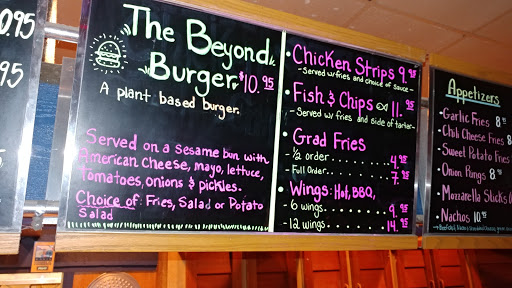 0.95
95
The Beyond
Burger $10.95
A plant based burger.
Served on a sesame bun with
American cheese, mayo, lettuce,
tomatoes, onions & pickles.
Choice of: Fries, Salad or Potato
Salad
• Chicken Strips 9.95
- Served w/fries and choice of sauce -
• Fish & Chips 11.95
- Served w/ fries and side of tartar -
• Grad Fries
- 1/2 order........ 4.95
- Full Order........ 7.95
• Wings: Hot, BBQ,
- 6 wings........ 9.95
- 12 wings........ 14.95
Appetizers
Garlic Fries 8
Chili Cheese Fries
Sweet Potato Fries
Onion Rings 8
Mozzarella Sticks
Nachos 10.95